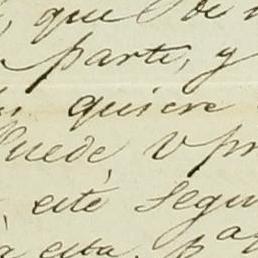 , que de
parte, y
quiere
Puede V pr
esté segu
a esta, pa